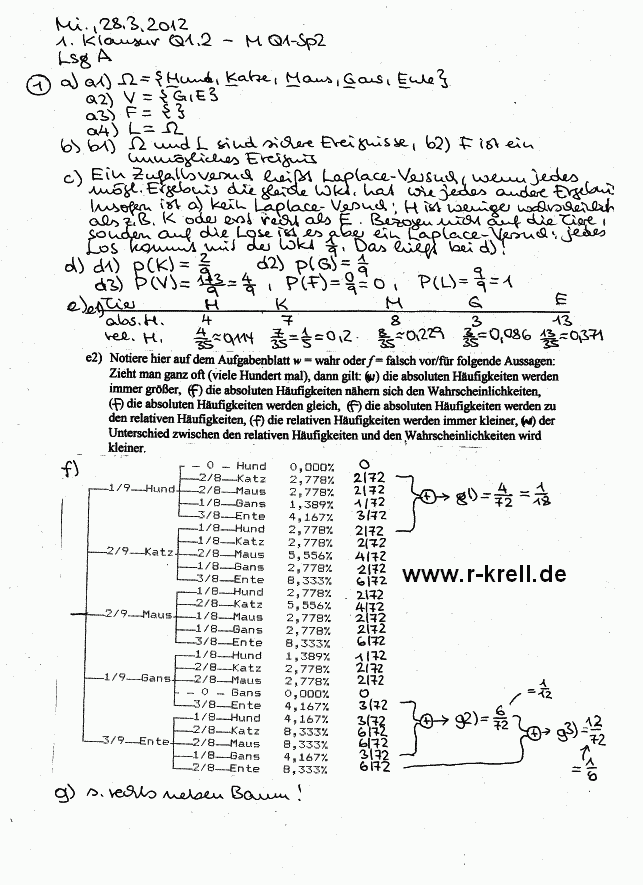 Mi., 28.3.2012
1. Klausur Q1.2 - M Q1-Sp2
Lsg A
① a) a1) Ω = {Hund, Katze, Maus, Gans, Ente}
a2) V = {G,E}
a3) F = { }
a4) L = Ω
b) b1) Ω und L sind sichere Ereignisse, b2) F ist ein
unmögliches Ereignis
c) Ein Zufallsversuch heißt Laplace-Versuch, wenn jedes
mögl. Ergebnis die gleiche Wkt. hat wie jedes andere Ergebnis
Insofern ist a) kein Laplace-Versuch: H ist weniger wahrscheinlich
als z.B. K oder erst recht als E. Bezogen nicht auf die Tiere,
sondern auf die Lose ist es aber ein Laplace-Versuch: jedes
Los kommt mit der Wkt 1/9. Das hieß bei d)!
d) d1) p(K) = 2/9 d2) p(G) = 1/9
d3) P(V) = 1+3/9 = 4/9, P(F) = 0/9 = 0, P(L) = 9/9 = 1
e) e1) Tier H K M G E
abs. H. 4 7 8 3 13
rel. H. 4/35≈0,114 7/35=1/5=0,2 8/35≈0,229 3/35≈0,086 13/35≈0,371
e2) Notiere hier auf dem Aufgabenblatt w = wahr oder f = falsch vor/für folgende Aussagen:
Zieht man ganz oft (viele Hundert mal), dann gilt: (w) die absoluten Häufigkeiten werden
immer größer, (f) die absoluten Häufigkeiten nähern sich den Wahrscheinlichkeiten,
(f) die absoluten Häufigkeiten werden gleich, (f) die absoluten Häufigkeiten werden zu
den relativen Häufigkeiten, (f) die relativen Häufigkeiten werden immer kleiner, (w) der
Unterschied zwischen den relativen Häufigkeiten und den Wahrscheinlichkeiten wird
kleiner.
f)
- 0 - Hund 0,000% 0
2/8—Katz 2,778% 2/72
1/9—Hund 2/8—Maus 2,778% 2/72 ⊕→ g1) = 4/72 = 1/18
1/8—Gans 1,389% 1/72
3/8—Ente 4,167% 3/72
1/8—Hund 2,778% 2/72
1/8—Katz 2,778% 2/72
2/9—Katz 2/8—Maus 5,556% 4/72
1/8—Gans 2,778% 2/72
3/8—Ente 8,333% 6/72
www.r-krell.de
1/8—Hund 2,778% 2/72
2/8—Katz 5,556% 4/72
2/9—Maus 1/8—Maus 2,778% 2/72
1/8—Gans 2,778% 2/72
3/8—Ente 8,333% 6/72
1/8—Hund 1,389% 1/72
2/8—Katz 2,778% 2/72
1/9—Gans 2/8—Maus 2,778% 2/72
- 0 - Gans 0,000% 0 = 1/12
3/8—Ente 4,167% 3/72
1/8—Hund 4,167% 3/72 ⊕→ g2) = 6/72 ⊕→ g3) = 12/72
2/8—Katz 8,333% 6/72
3/9—Ente 2/8—Maus 8,333% 6/72
1/8—Gans 4,167% 3/72
2/8—Ente 8,333% 6/72 = 1/6
g) s. rechts neben Baum!